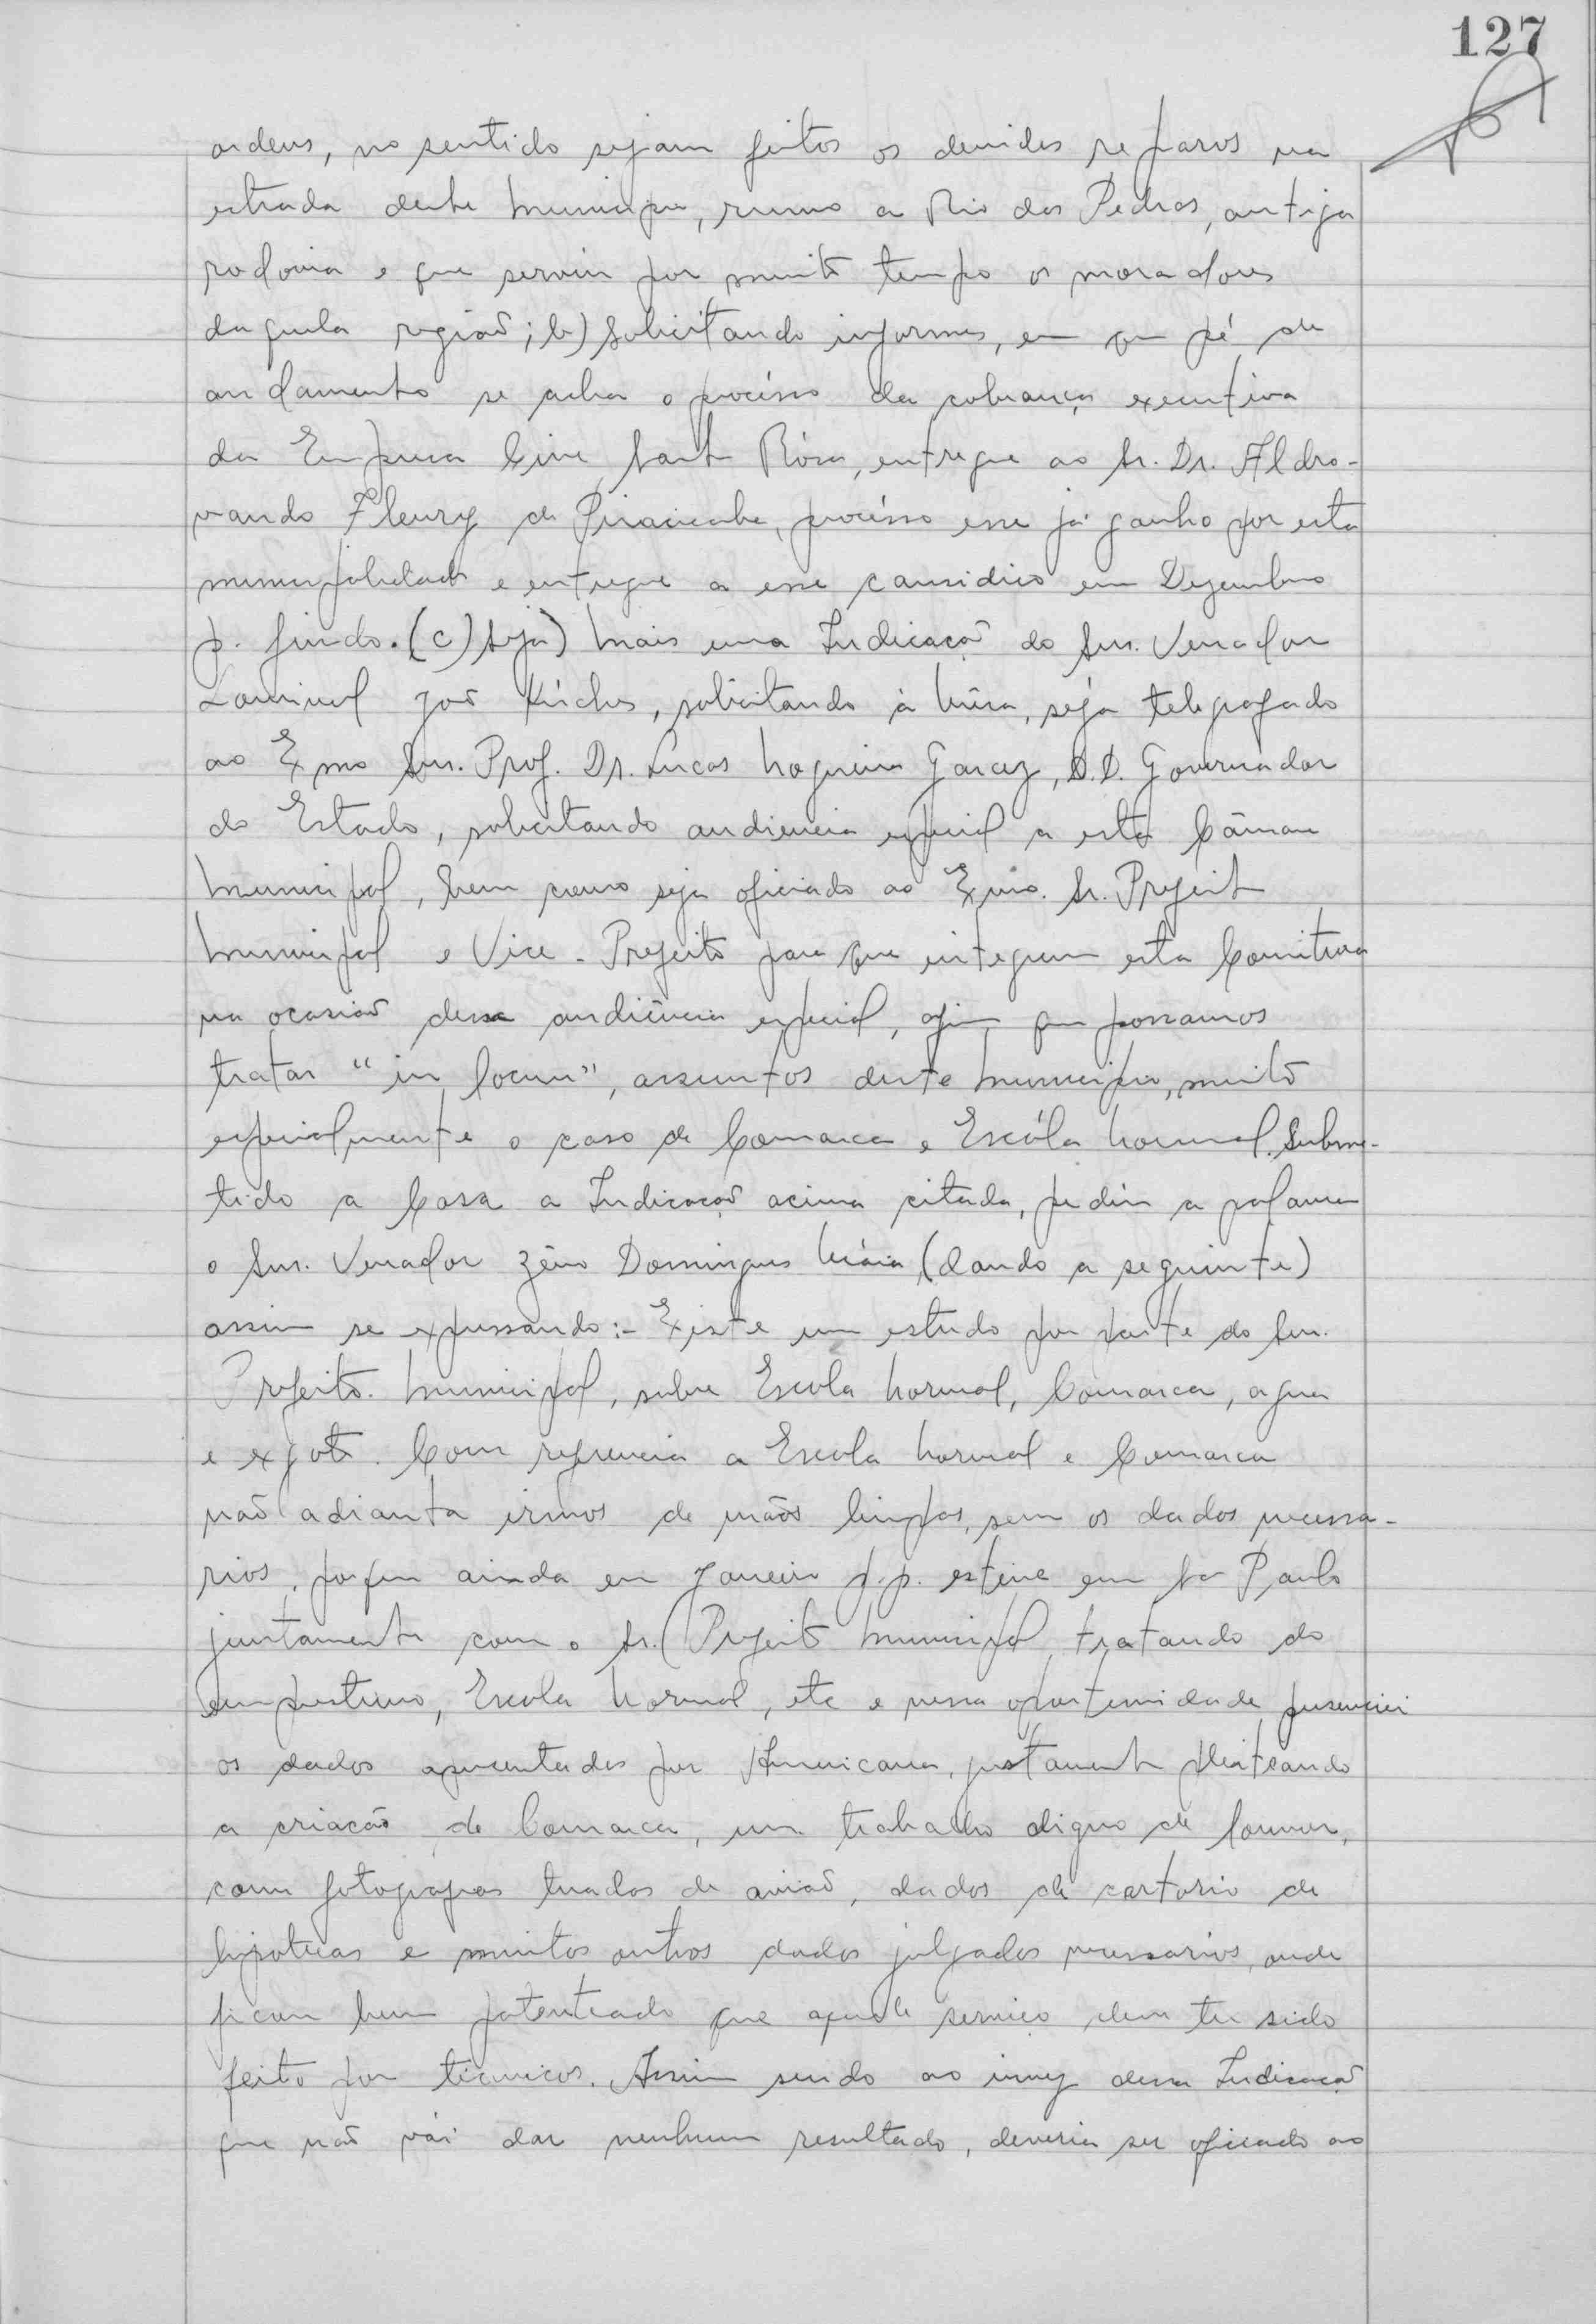 127
ordens, no sentido sejam feitos os devidos reparos na
estrada deste Municipio, rumo a Rio das Pedras, antiga
rodovia e que serviu por muito tempo os moradores
daquela região; b) Solicitando informes, em que pé de
andamento se acha o procésso da cobrança executiva
da Empresa Cine Santa Rósa, entregue ao Sr. Dr. Aldro-
vando Fleury de Piracicaba, procésso esse já ganho por esta
municipalidade e entregue a esse causidico em Dezembro
p. findo. (c) seja) Mais uma Indicação do Snr. Vereador
Lourival João Kirches, solicitando à Mêsa, seja telegrafado
ao Exmo Snr. Prof. Dr. Lucas Nogueira Garcez, D.D. Governador
do Estado, solicitando audiencia especial a esta Câmara
Municipal, bem como seja oficiado ao Exmo. Sr. Prefeito
Municipal e Vice-Prefeito para que integrem esta Comitiva
na ocasião dessa audiência especial, afim que possamos
tratar "in locum", assuntos deste Municipio, muito
especialmente o caso de Comarca e Escóla Normal. Subme-
tido a Casa a Indicação acima citada, pediu a palavra
o Snr. Vereador Zêno Domingues Máia (dando a seguinte)
assim se expressando:- Existe um estudo por parte do Snr.
Prefeito Municipal, sobre Escola Normal, Comarca, agua
e exgoto. Com referencia a Escola Normal e Comarca
não adianta irmos de mãos limpas, sem os dados necessa-
rios, porque ainda em Janeiro p.p. estive em São Paulo
juntamente com o Sr. Prefeito Municipal, tratando do
emprestimo, Escola Normal, etc e nessa oportunidade presenciei
os dados apresentados por Americana, justamente pleiteando
a criação de Comarca, um trabalho digno de louvor,
com fotografias tiradas de avião, dados de cartorio de
hipotecas e muitos outros dados julgados necessarios, onde
ficou bem patenteado que aquele serviço deve ter sido
feito por técnicos. Assim sendo ao invez dessa Indicação
que não vái dar nenhum resultado, deveria ser oficiado ao